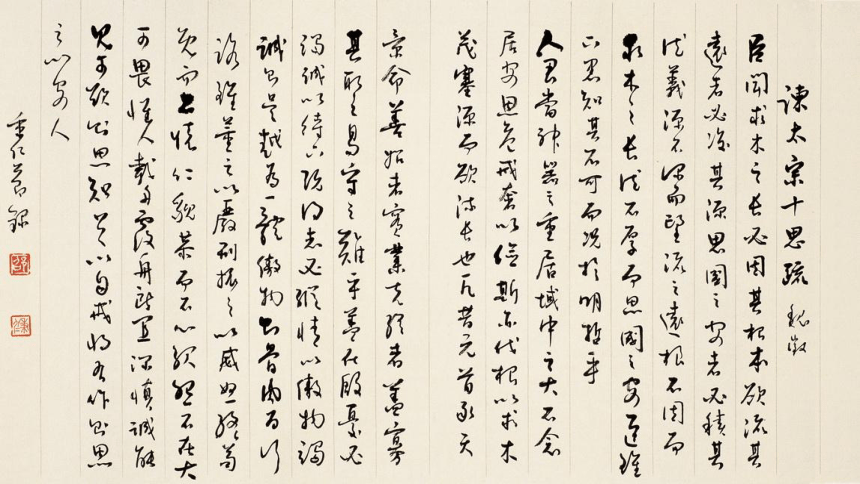 諫太宗十思疏 魏徵
臣聞求木之長必固其根本欲流其
遠者必浚其源思國之安者必積其
德義源不深而望流之遠根不固而
求木之長德不厚而思國之安臣雖
下愚知其不可而況於明哲乎
人君當神器之重居域中之大不念
居安思危戒奢以儉斯亦伐根以求木
茂塞源而欲流長也凡昔元首承天
景命善始者實繁克終者蓋寡
其取之易守之難乎蓋在殷憂必
竭誠以待下既得志必縱情以傲物竭
誠則吳越為一體傲物則骨肉為行
路雖董之以嚴刑振之以威怒終苟
免而不懷仁貌恭而不心服怨不在大
可畏惟人載舟覆舟所宜深慎誠能
見可欲則思知足以自戒將有作則思
之以安人
節錄